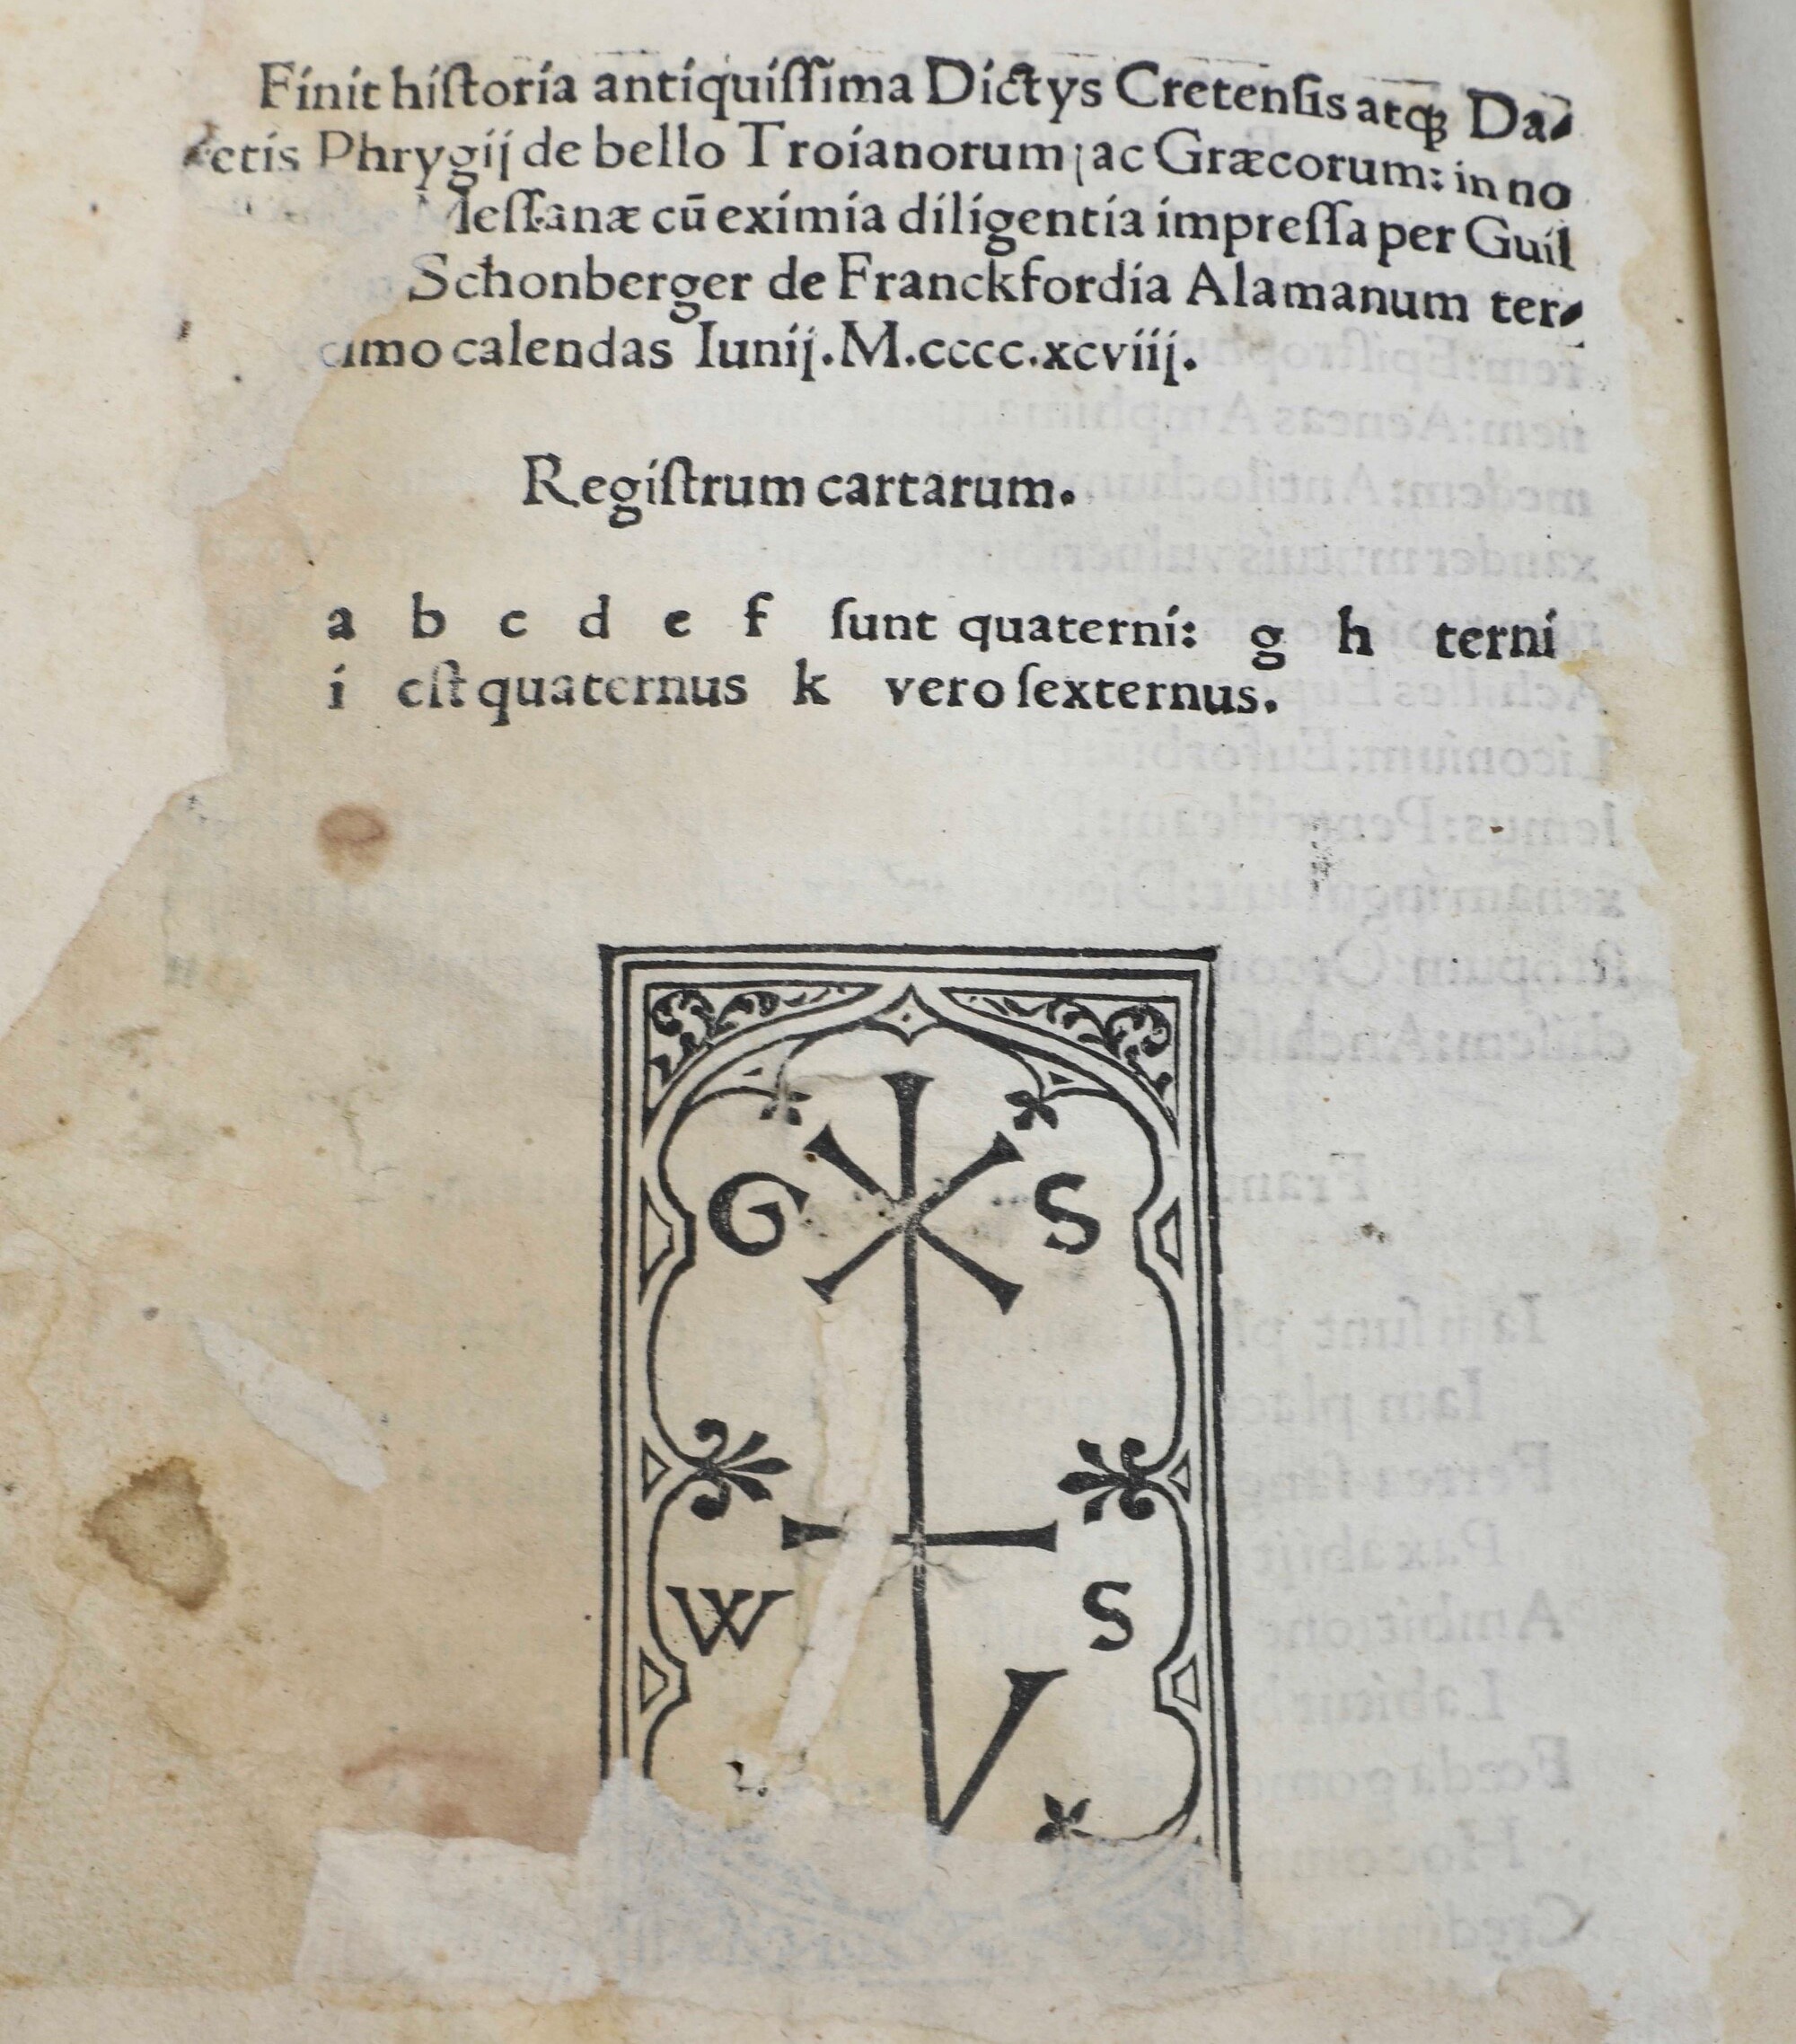 Finit hiſtoria antiquiſſima Dictys Cretenſis atqꝫ Da⸗
retis Phrygij de bello Troianorum ac Græcorum: in no
Meſſanæ cū eximia diligentia impreſſa per Guil
Schonberger de Franckfordia Alamanum ter⸗
cimo calendas Iunij. M.cccc.xcviij.
Regiſtrum cartarum.
a b c d e f ſunt quaterni: g h terni
i eſt quaternus k vero ſexternus.
G S
W S